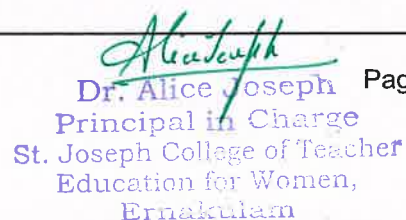 Alice Joseph
Dr. Alice Joseph Pag
Principal in Charge
St. Joseph College of Teacher
Education for Women,
Ernakulam